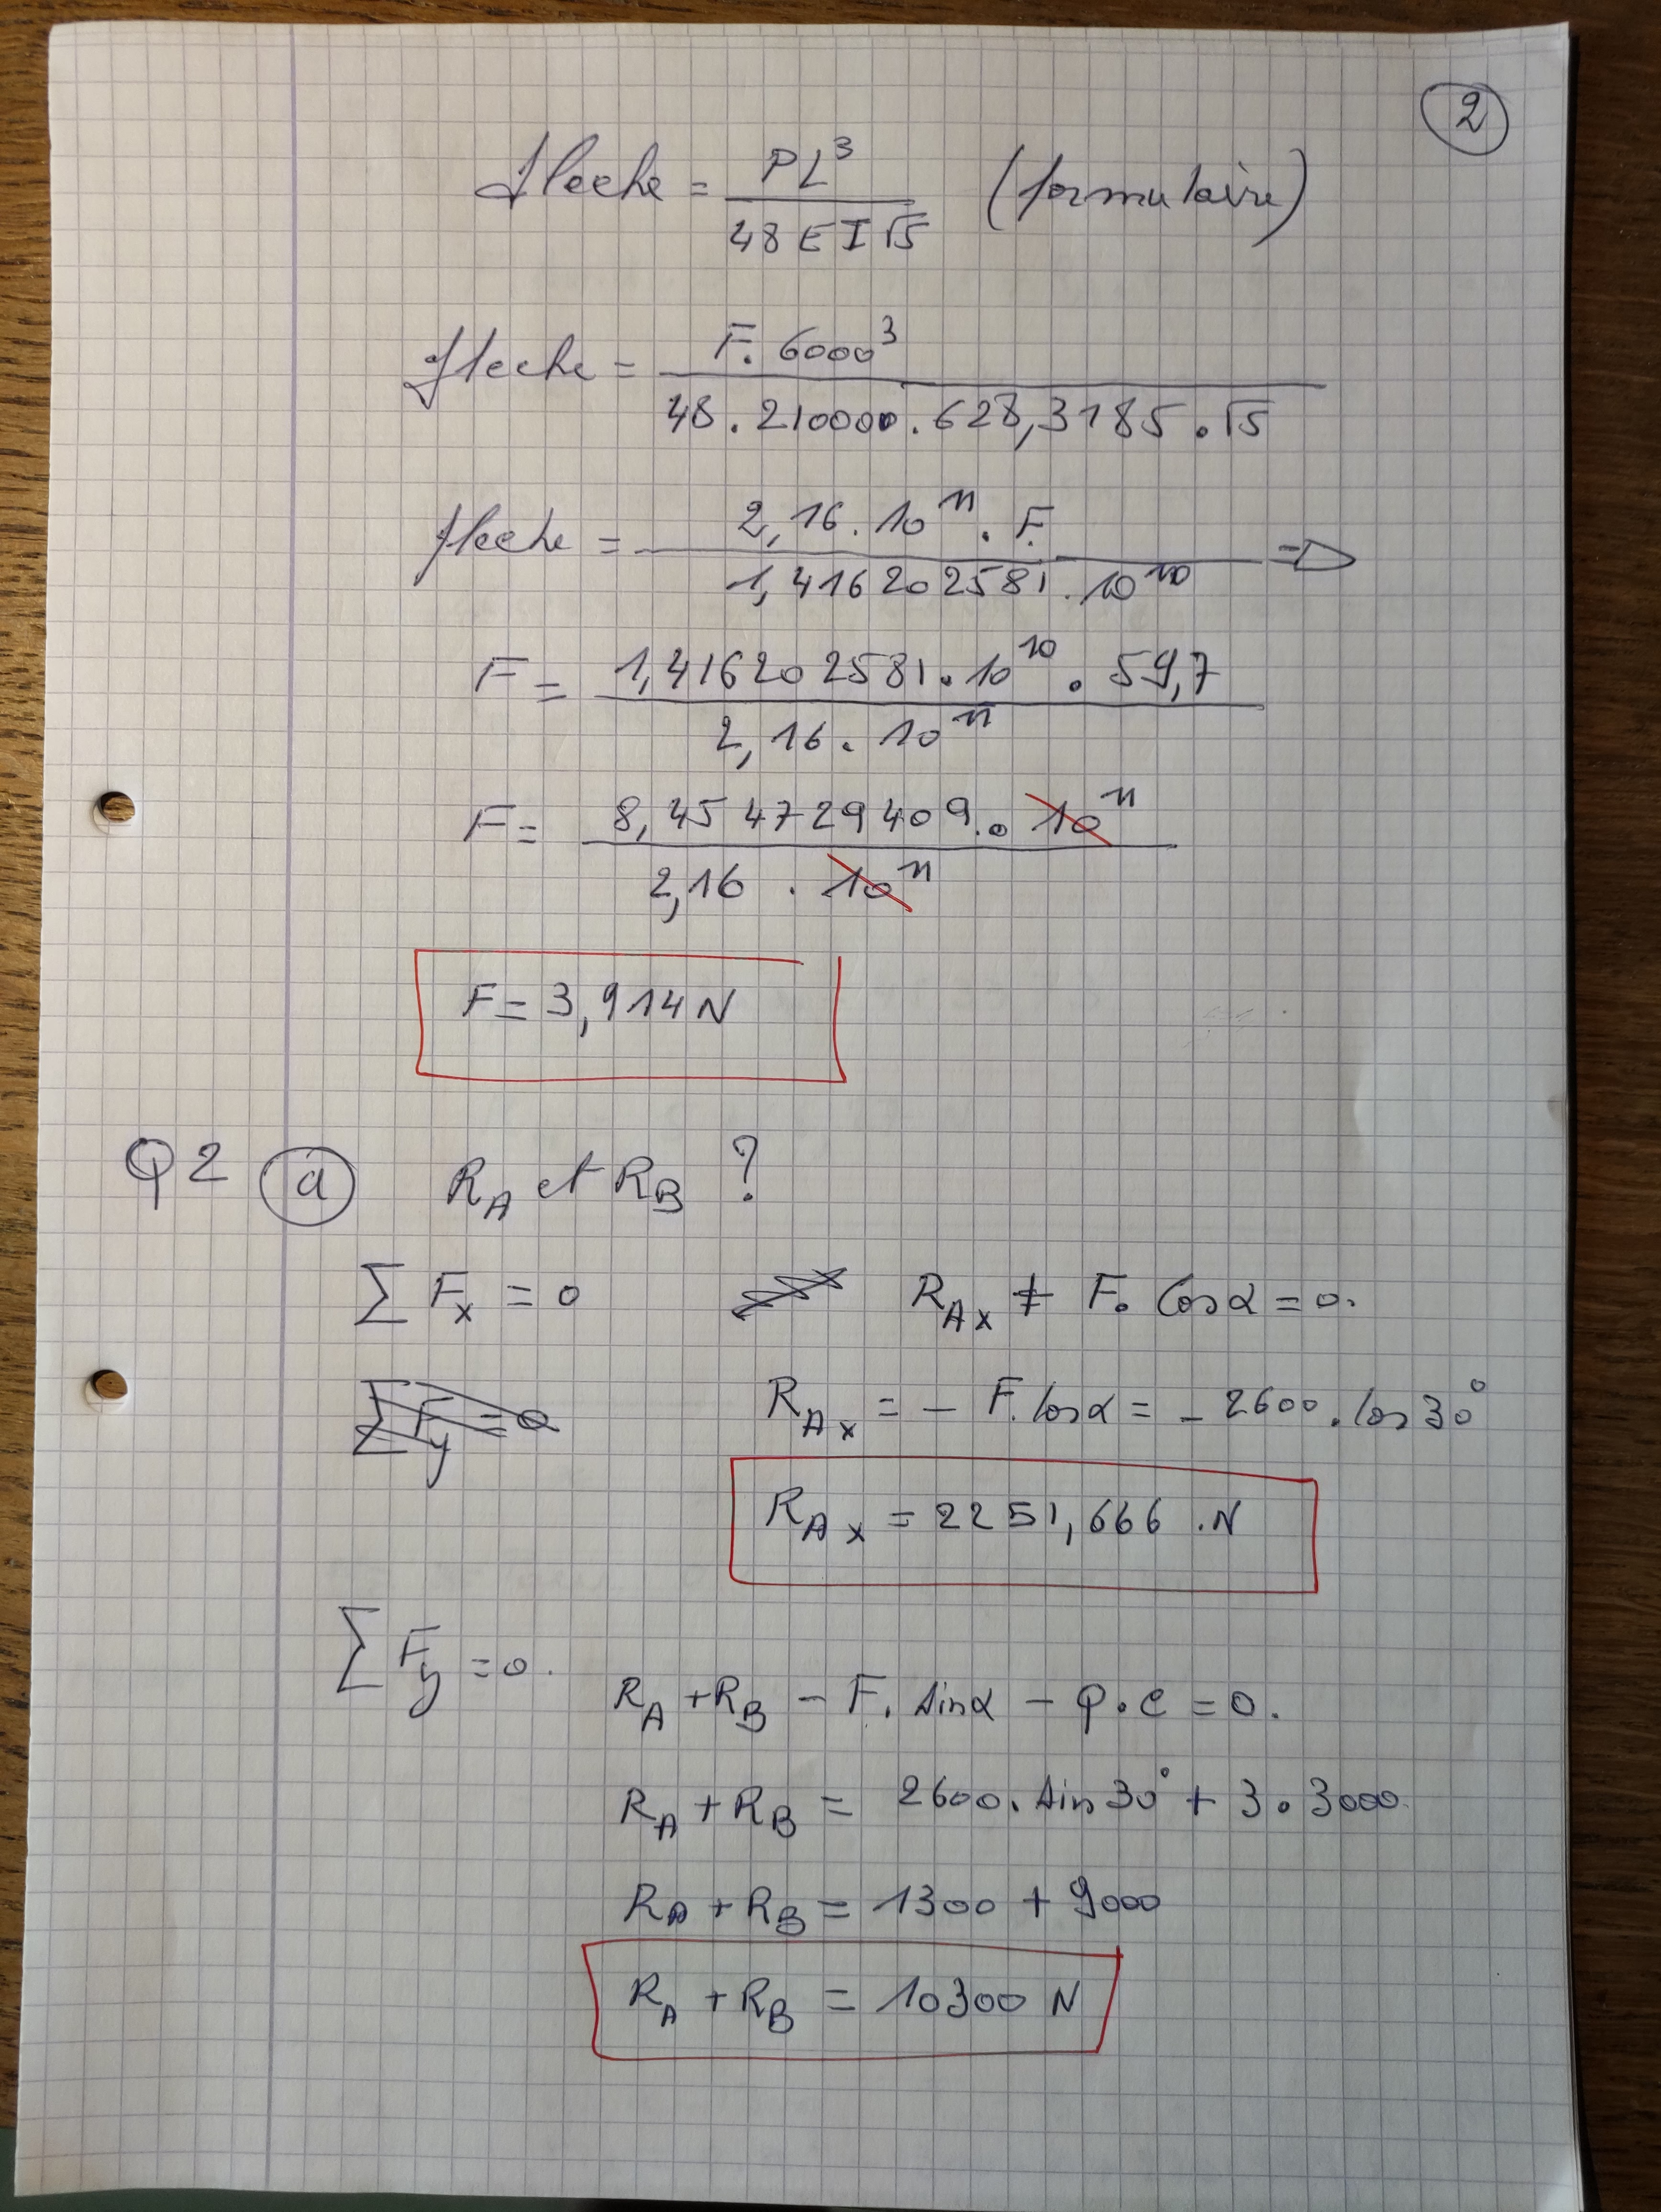 2
fleche = PL³ / 48 E I √5 (formulaire)
fleche = F. 6000³ / 48 . 210000 . 628,3185 . √5
fleche = 2,16 . 10¹¹ . F. / 1,416202581 . 10¹⁰ ⇒
F = 1,416202581 . 10¹⁰ . 59,7 / 2,16 . 10¹¹
F = 8,454729409 . 10¹¹ / 2,16 . 10¹¹
F = 3,914 N
Q2 a R_A et R_B ?
∑ F_x = 0 R_Ax + F. Cos α = 0.
∑ F_y = 0 R_Ax = - F. cos α = - 2600 . cos 30°
R_Ax = 2251,666 . N
∑ F_y = 0. R_A + R_B - F. sin α - q . c = 0.
R_A + R_B = 2600 . sin 30° + 3 . 3000
R_A + R_B = 1300 + 9000
R_A + R_B = 10300 N